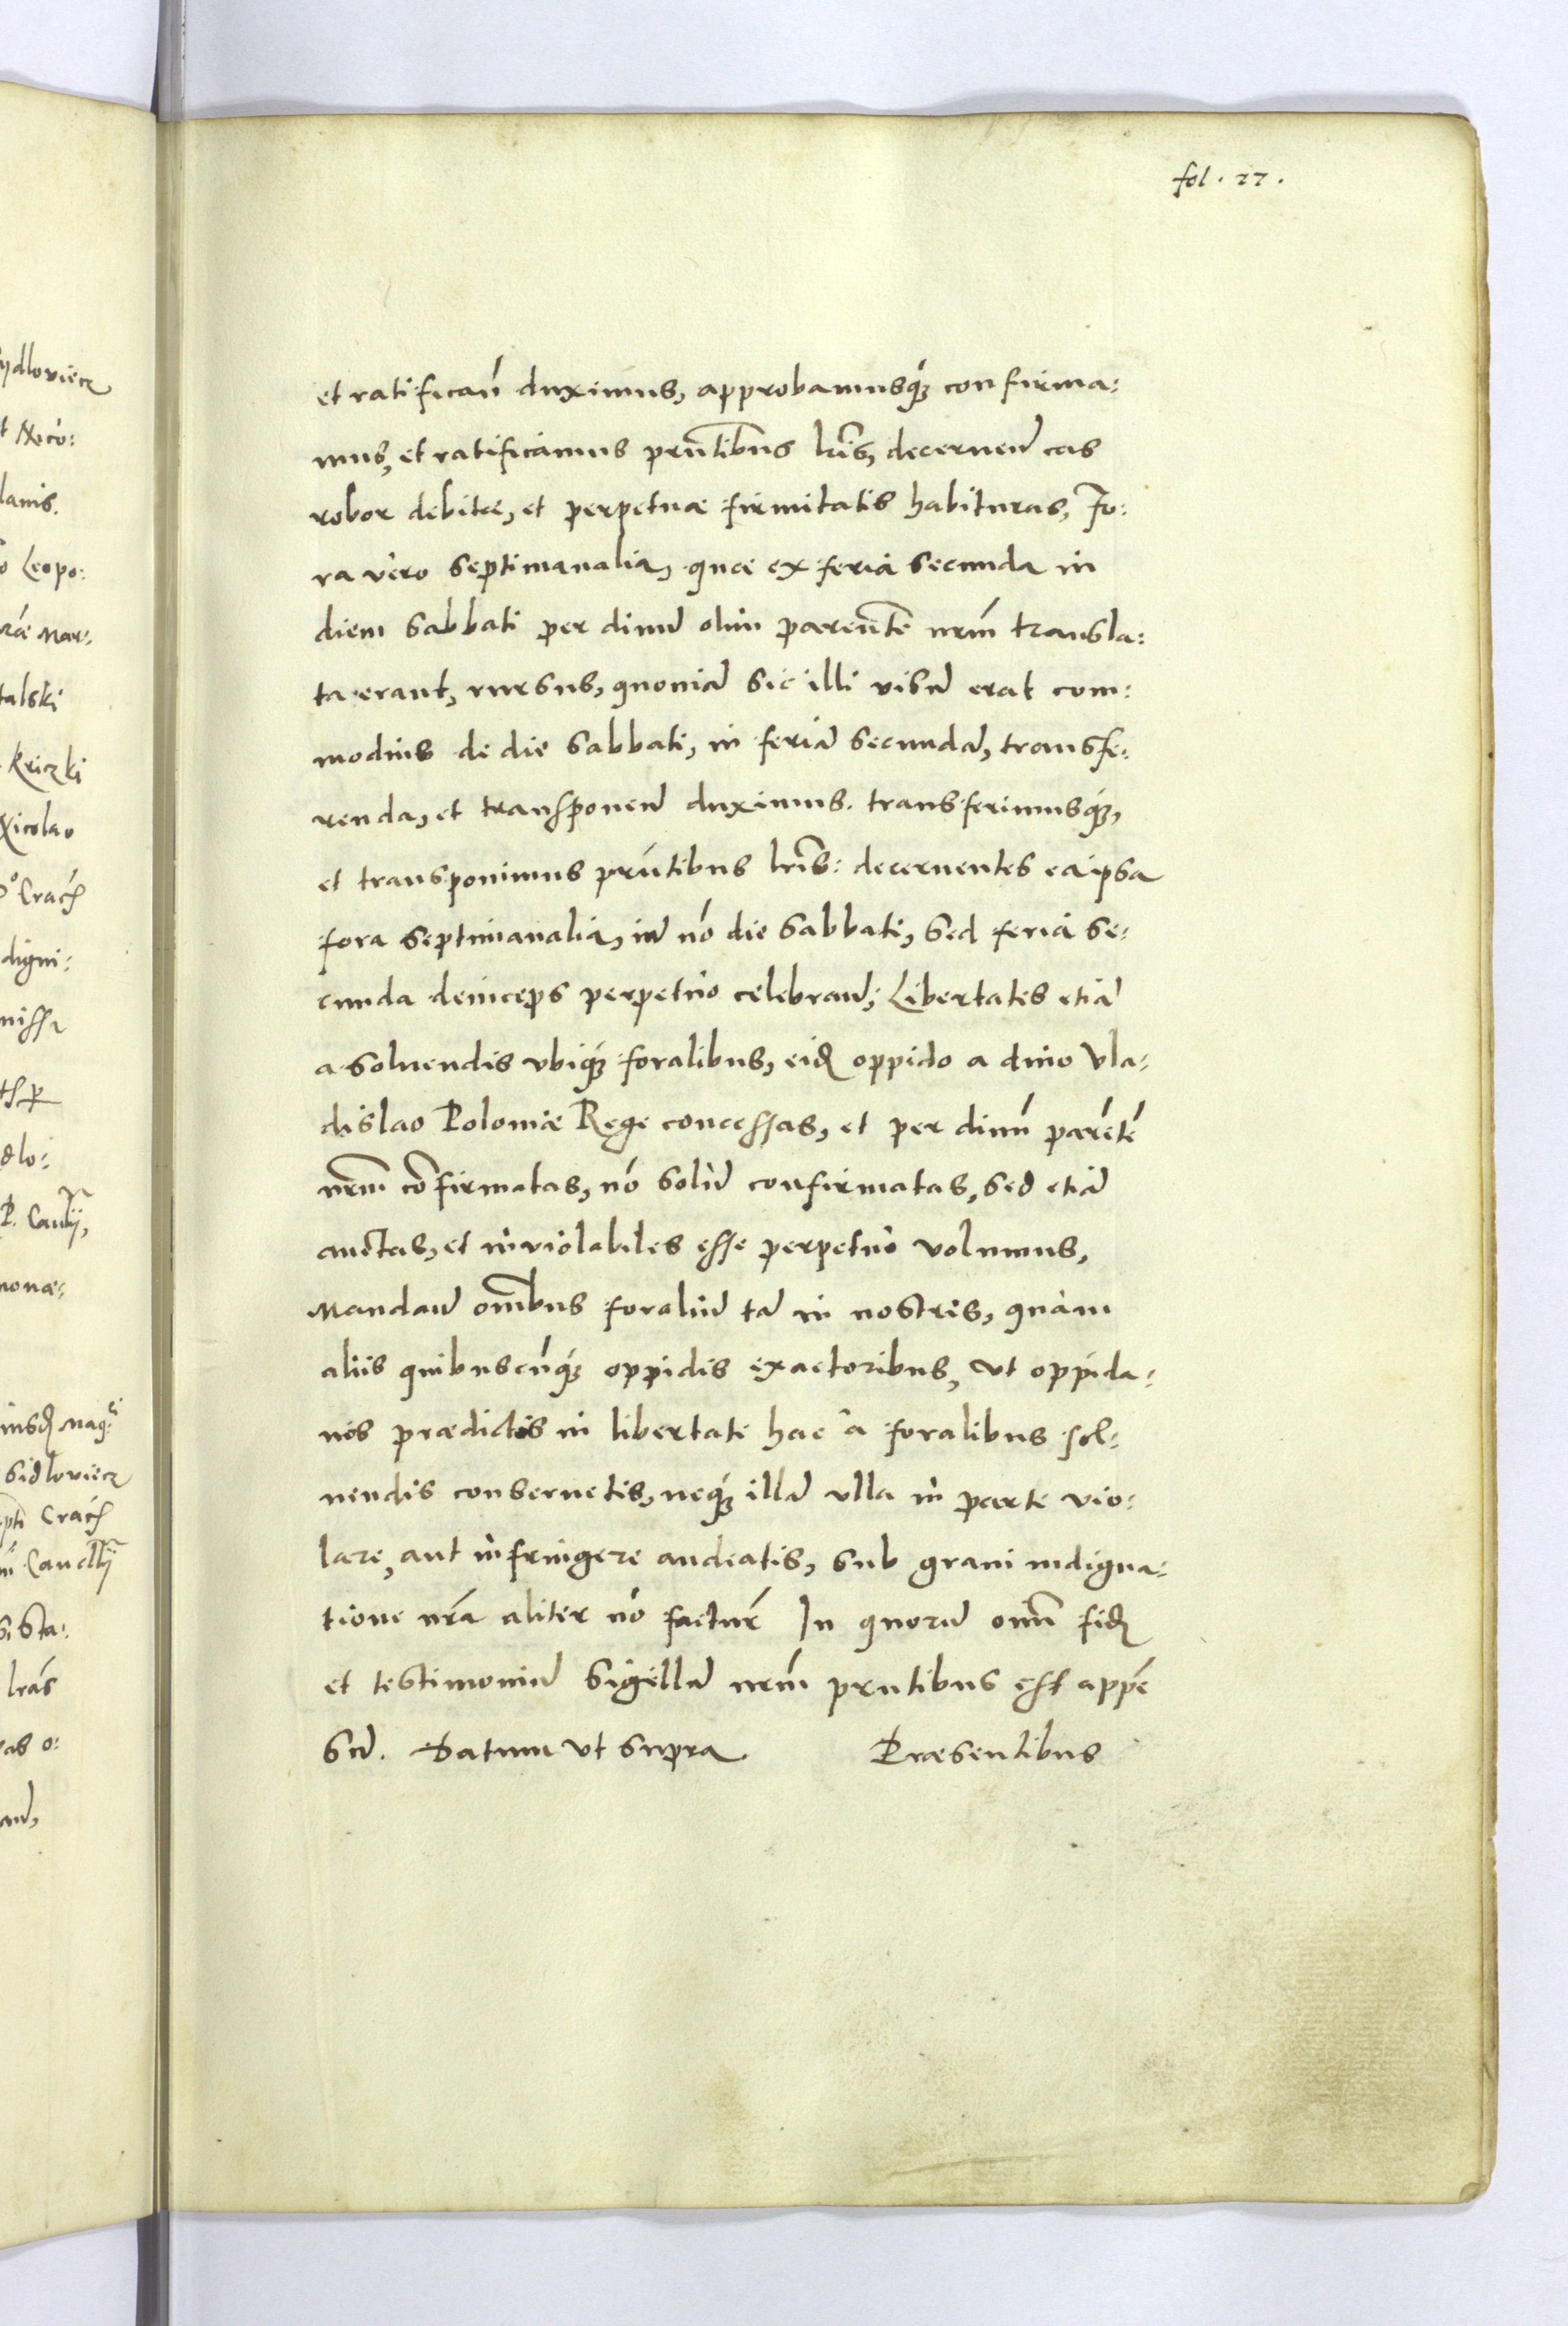 fol. 27.
et ratificań duximus, approbamusq́ȝ confirma:
mus, et ratificamus prñtibus lr̃is, decernen̄ eas
robor debitæ, et perpetuæ firmitatis habituras, Fo:
ra vero septimanalia, quæ ex feria secunda in
diem Sabbati per diuu̅ olim parente̅ nr̃m transla:
ta erant, rursus, quonia̅ sic illi visu̅ erat com:
modius de die Sabbati, in feria̅ secunda̅, transfe:
renda, et transponen̄ duximus. transferimusq́ȝ,
et transponimus prñtibus lr̃is: decernentes ea ipsa
fora septimanalia, ia̅ nó die Sabbati, sed feria se:
cunda deinceps perpetuo celebran̄, Libertates etia̅
a soluendis vbiq́ȝ foralibus, eid̃ oppido a diuo Vla:
dislao Poloniæ Rege concessas, et per diuu̅ pare̅te̅
nr̃m co̅firmatas, nó solu̅ confirmatas, sed etia̅
auctas, et inviolabiles esse perpetuo volumus,
Mandan̄ om̃ibus foraliu̅ ta̅ in nostris, quàm
aliis quibuscu̅q́ȝ oppidis exactoribus, vt oppida:
nos prædictos in libertate hac à foralibus sol:
uendis conseruetis, neq́ȝ illa̅ vlla in parte vio:
lare, aut infringere audeatis, sub graui indigna:
tione nr̃a aliter nó factur̃ In quoru̅ om̃ fid̃
et testimoniu̅ Sigillu̅ nr̃m prñtibus est appe̅
su̅. Datum vt supra Præsentibus